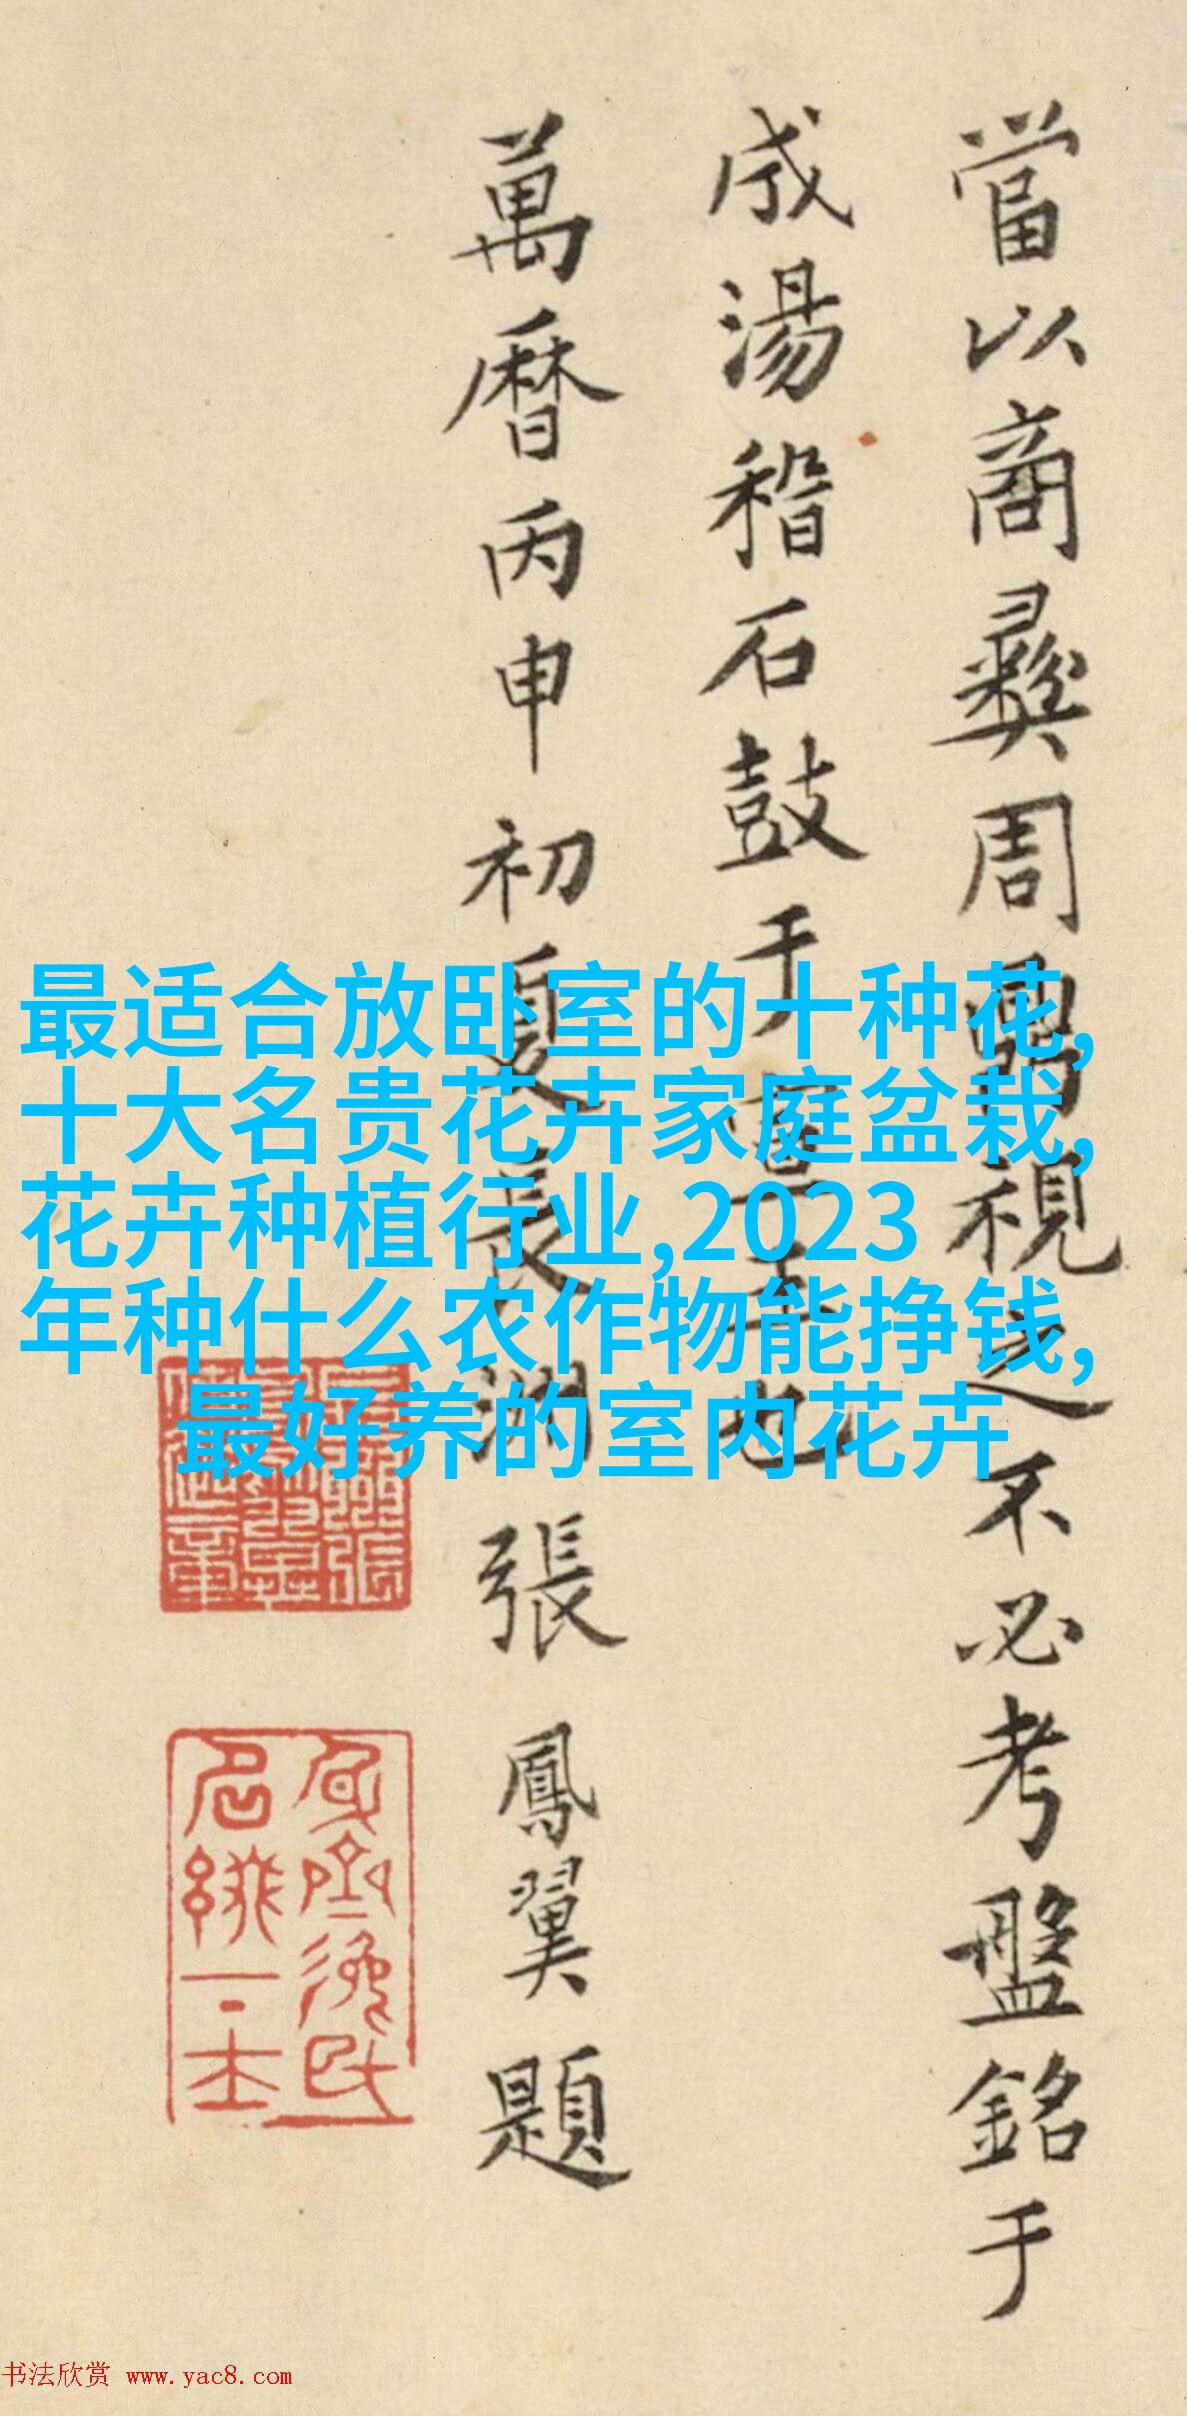 當以商彝周鼎視之不必考盤銘于
成湯稽石鼓于宣王也
萬曆丙申初夏長洲張鳳翼題
最适合放卧室的十种花,
十大名贵花卉家庭盆栽,
花卉种植行业,2023
年种什么农作物能挣钱,
最好养的室内花卉
书法欣赏 www.yac8.com